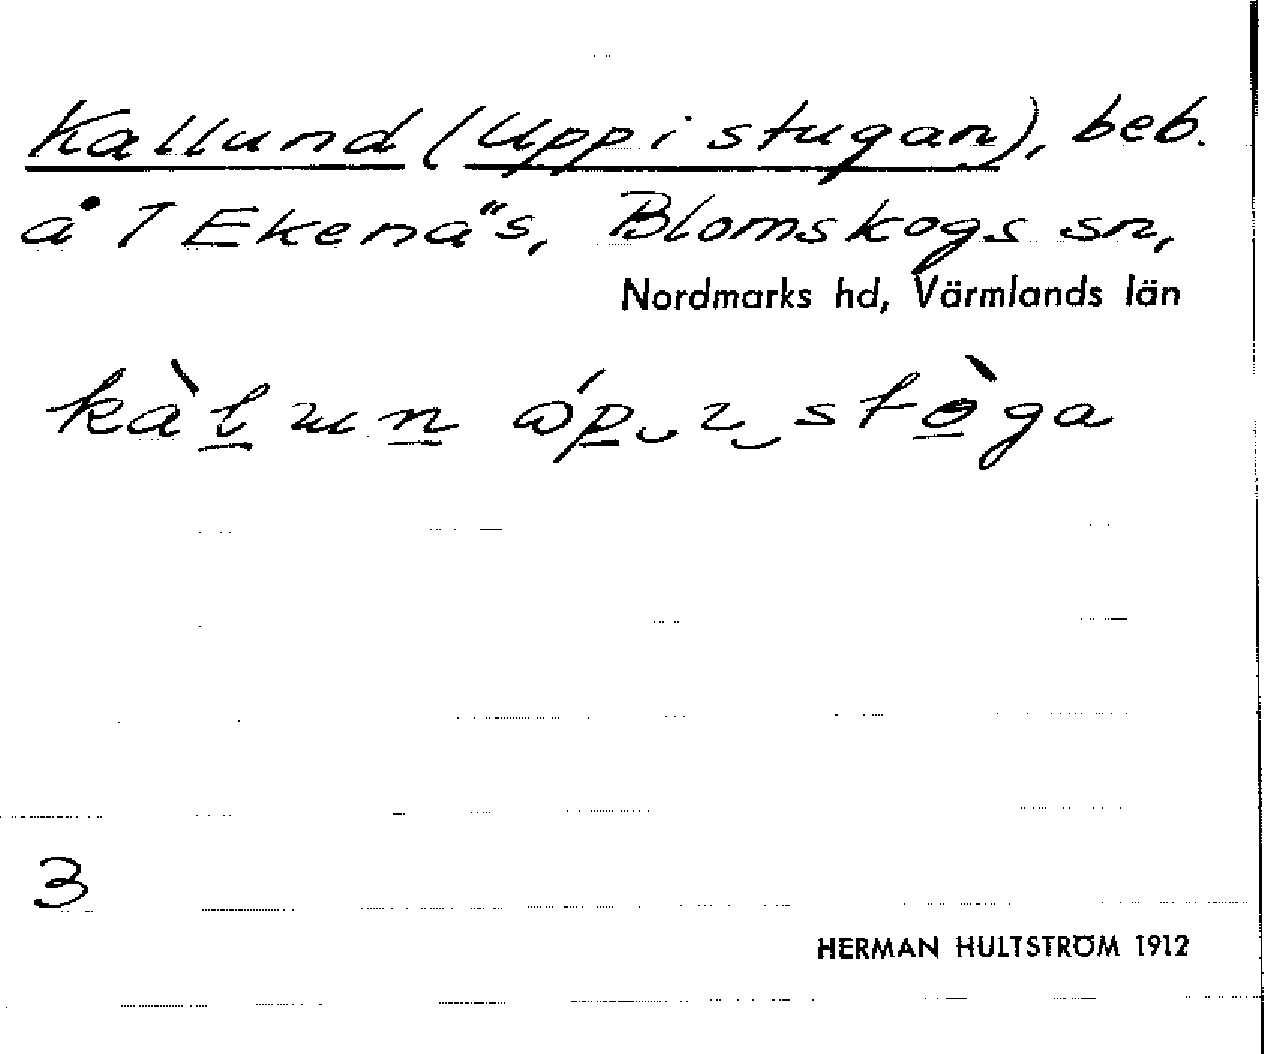 Kallund (Uppi stugan), beb.
å 1 Ekenäs, Blomskogs sn,
Nordmarks hd, Värmlands län
3
HERMAN HULTSTRÖM 1912